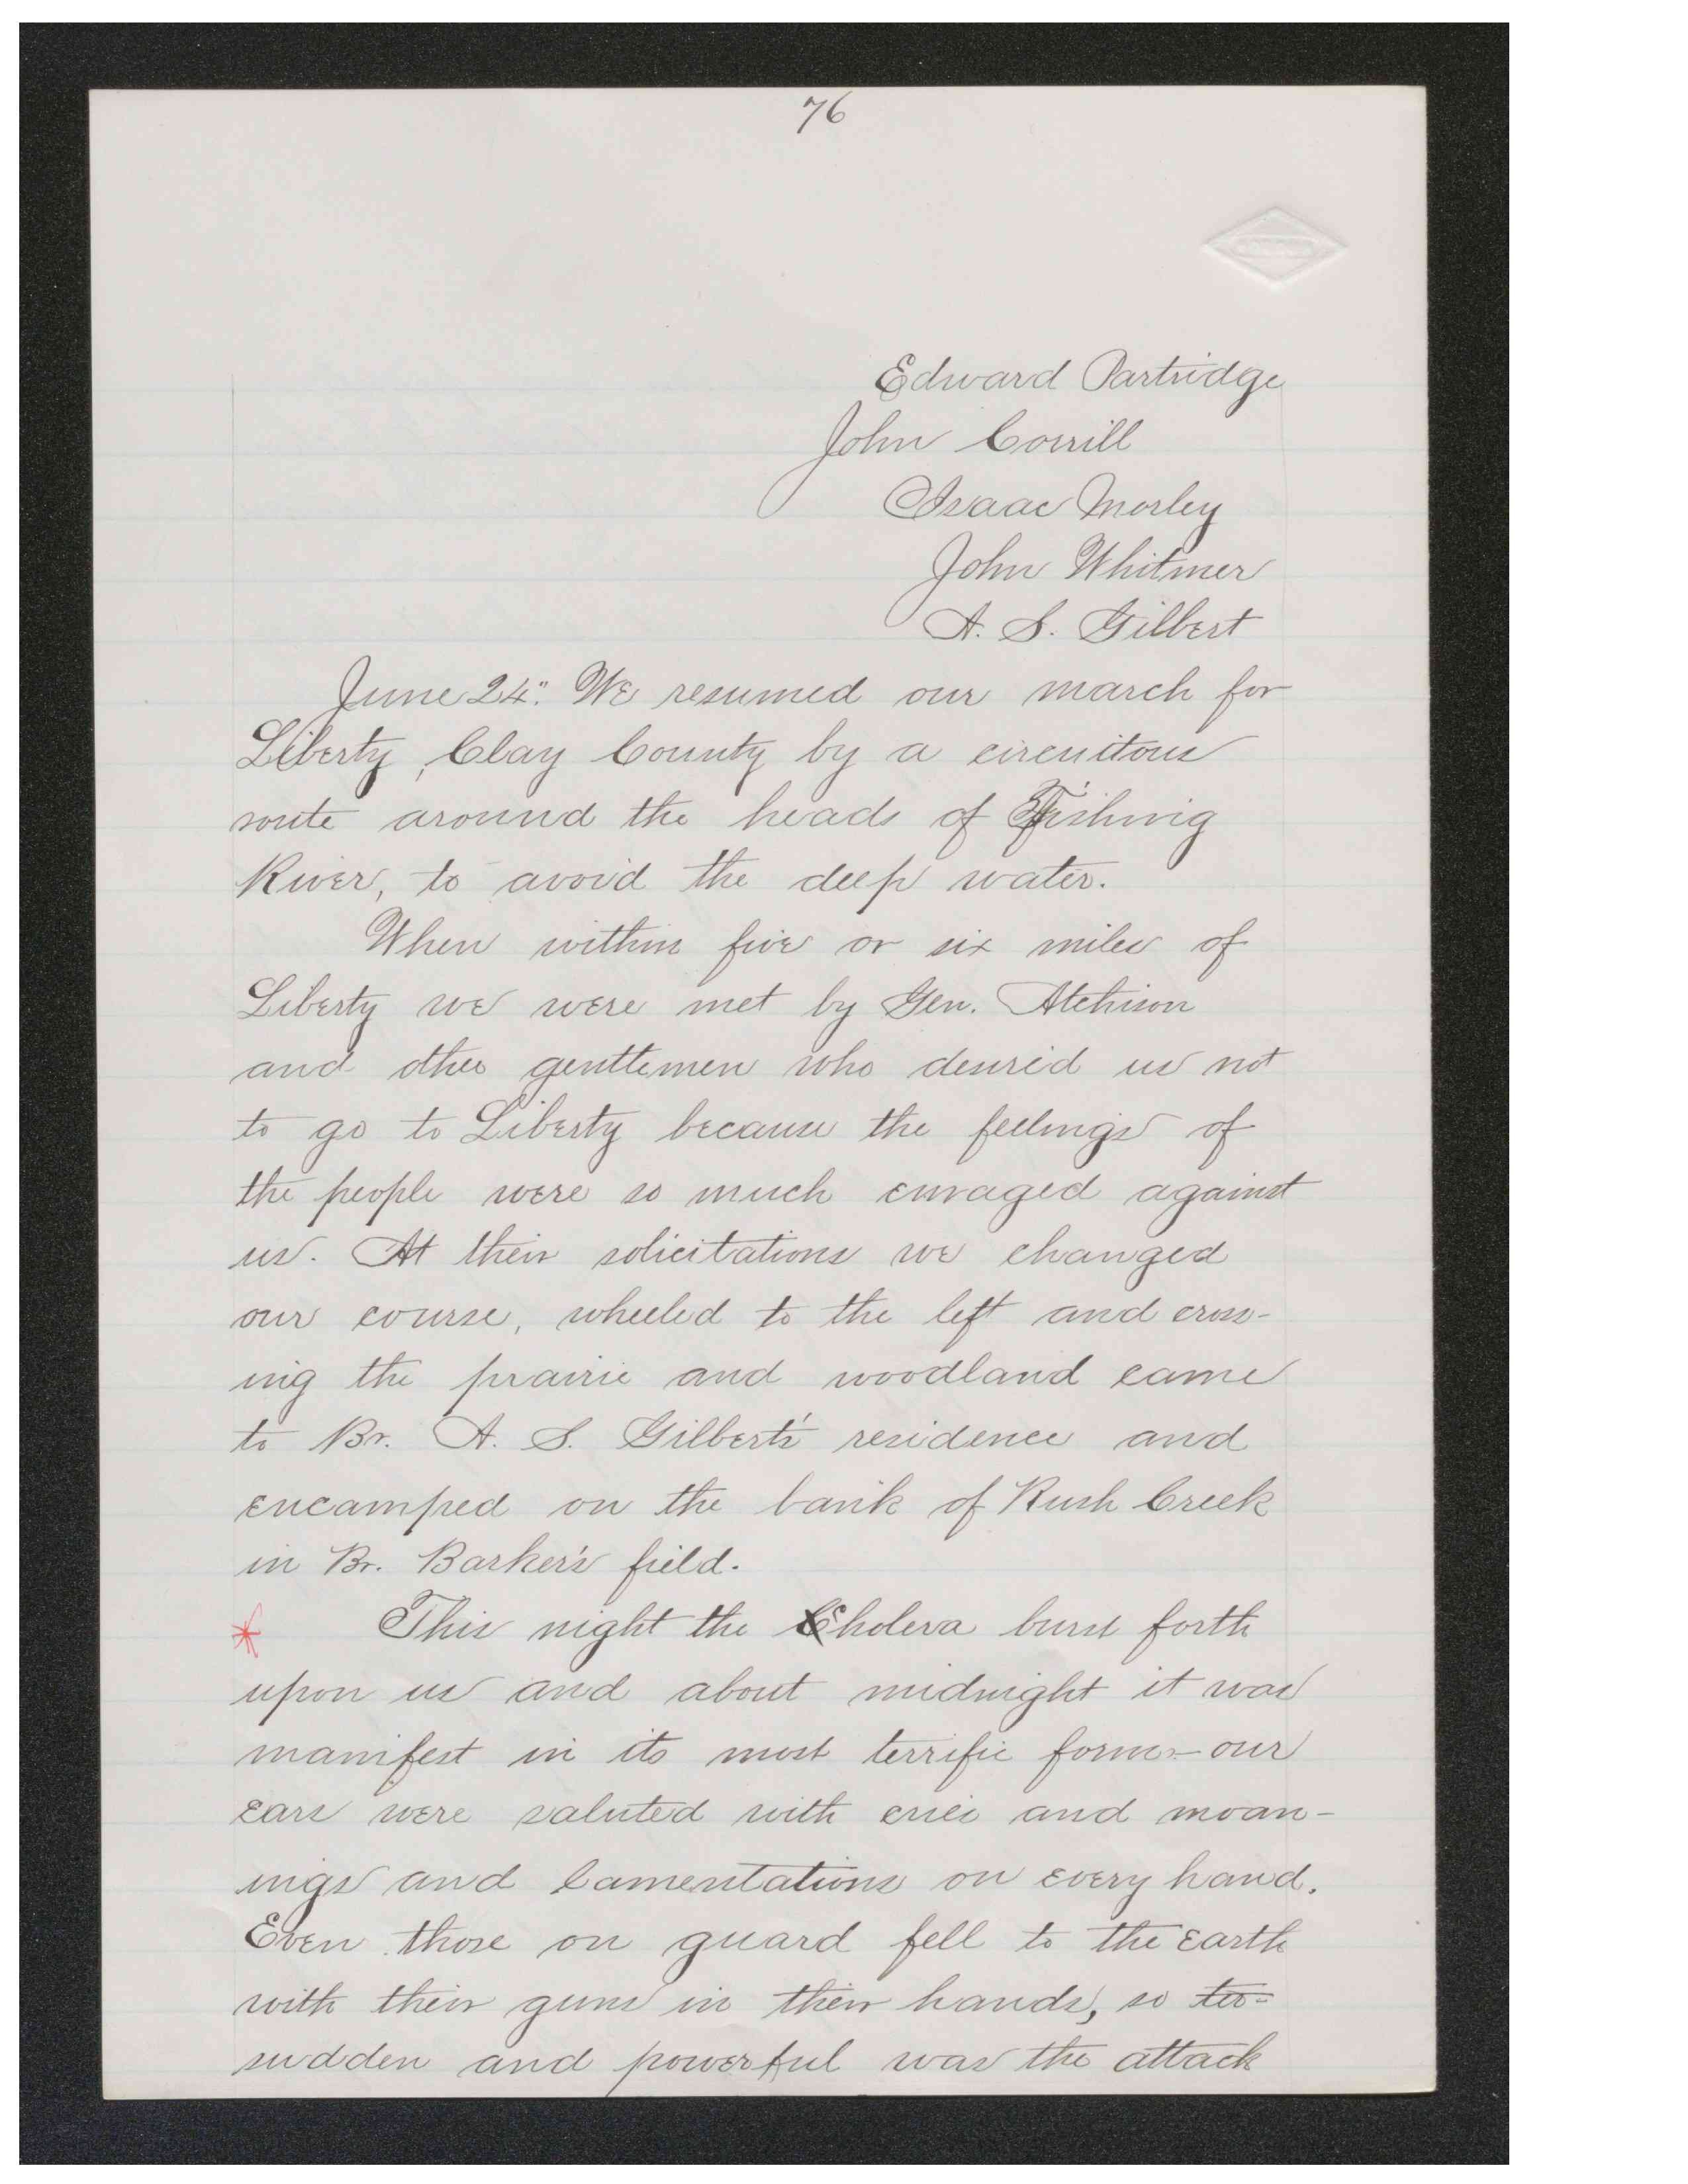 76
Edward Partridge
John Corrill
Isaac Morley
John Whitmer
A. S. Gilbert
June 24." We resumed our march for
Liberty, Clay County by a circuitous
route around the heads of Fishing
River, to avoid the deep water.
When within five or six miles of
Liberty we were met by Gen. Atchison
and other gentlemen who desired us not
to go to Liberty because the feelings of
the people were so much enraged against
us. At their solicitations we changed
our course, wheeled to the left and cross-
ing the prairie and woodland came
to Br. A. S. Gilbert's residence and
encamped on the bank of Rush Creek
in Br. Barker's field.
* This night the Cholera burst forth
upon us and about midnight it was
manifest in its most terrific form - our
ears were saluted with cries and moan-
ings and lamentations on every hand.
Even those on guard fell to the earth
with their guns in their hands, so
sudden and powerful was the attack